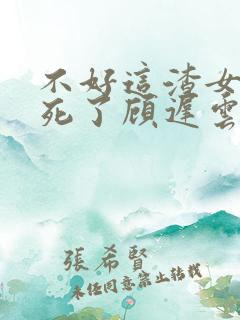 不好這渣女
死了顧遲雲
張希賢
未經同意禁止轉載